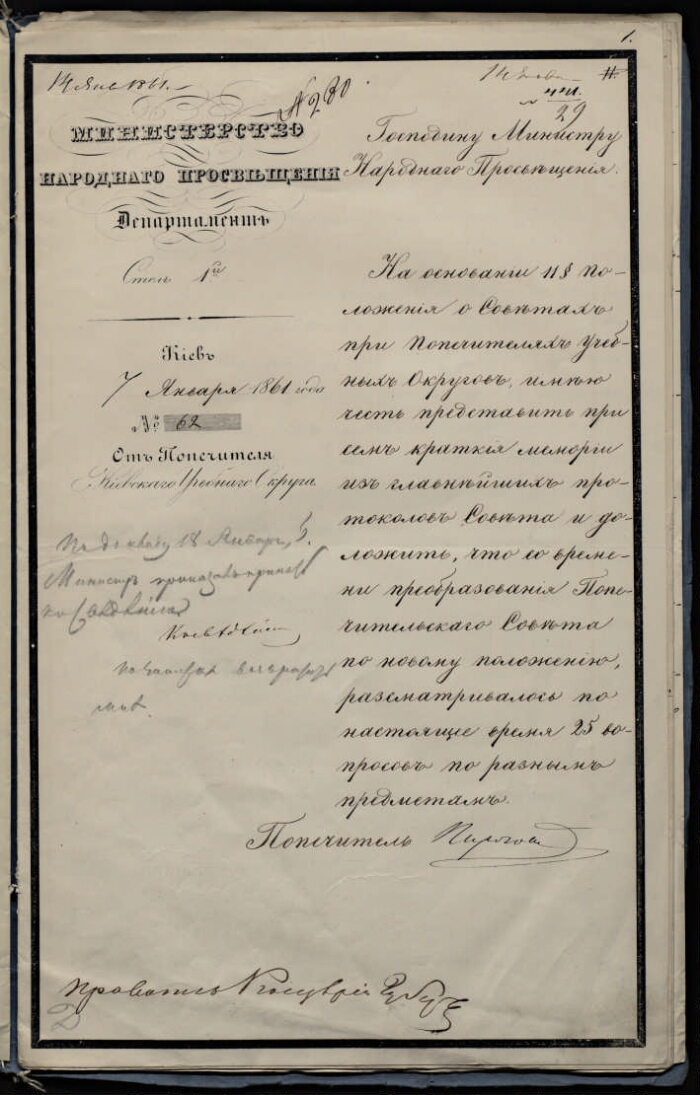 1.
14 Янв 1861.
№ 230.
МИНИСТЕРСТВО
НАРОДНАГО ПРОСВѢЩЕНІЯ
Департаментъ
Столъ 1й
Кіевъ
7 Января 1861 года
№ 62
Отъ Попечителя
Кіевскаго Учебнаго Округа
29
Господину Министру
Народнаго Просвѣщенія.
На основаніи 11 § По-
ложенія о Совѣтахъ
при Попечителяхъ Учеб-
ныхъ Округовъ, имѣю
честь представить при
семъ краткія меморіи
изъ главнѣйшихъ про-
токоловъ Совѣта и до-
ложить, что со време-
ни преобразованія Попе-
чительскаго Совѣта
по новому положенію,
разсматривалось по
настоящее время 25 во-
просовъ по разнымъ
предметамъ.
Попечитель Пирогов
18 Января,
Министръ приказалъ